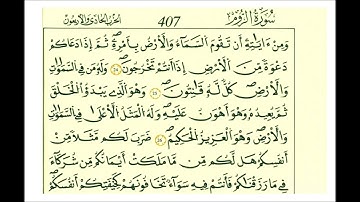 سُورَةُ الرُّومِ 407 الحزب الحادي والأربعون
وَمِنْ ءَايَٰتِهِۦٓ أَن تَقُومَ السَّمَآءُ وَالْأَرْضُ بِأَمْرِهِۦ ثُمَّ إِذَا دَعَاكُمْ
دَعْوَةً مِّنَ الْأَرْضِ إِذَآ أَنتُمْ تَخْرُجُونَ ۝ وَلَهُۥ مَن فِي السَّمَٰوَٰتِ
وَالْأَرْضِ كُلٌّ لَّهُۥ قَٰنِتُونَ ۝ وَهُوَ الَّذِي يَبْدَؤُا الْخَلْقَ
ثُمَّ يُعِيدُهُۥ وَهُوَ أَهْوَنُ عَلَيْهِ وَلَهُ الْمَثَلُ الْأَعْلَىٰ فِي السَّمَٰوَٰتِ
وَالْأَرْضِ وَهُوَ الْعَزِيزُ الْحَكِيمُ ۝ ضَرَبَ لَكُم مَّثَلًا مِّنْ
أَنفُسِكُمْ هَل لَّكُم مِّن مَّا مَلَكَتْ أَيْمَٰنُكُم مِّن شُرَكَآءَ
فِي مَا رَزَقْنَٰكُمْ فَأَنتُمْ فِيهِ سَوَآءٌ تَخَافُونَهُمْ كَخِيفَتِكُمْ أَنفُسَكُمْ